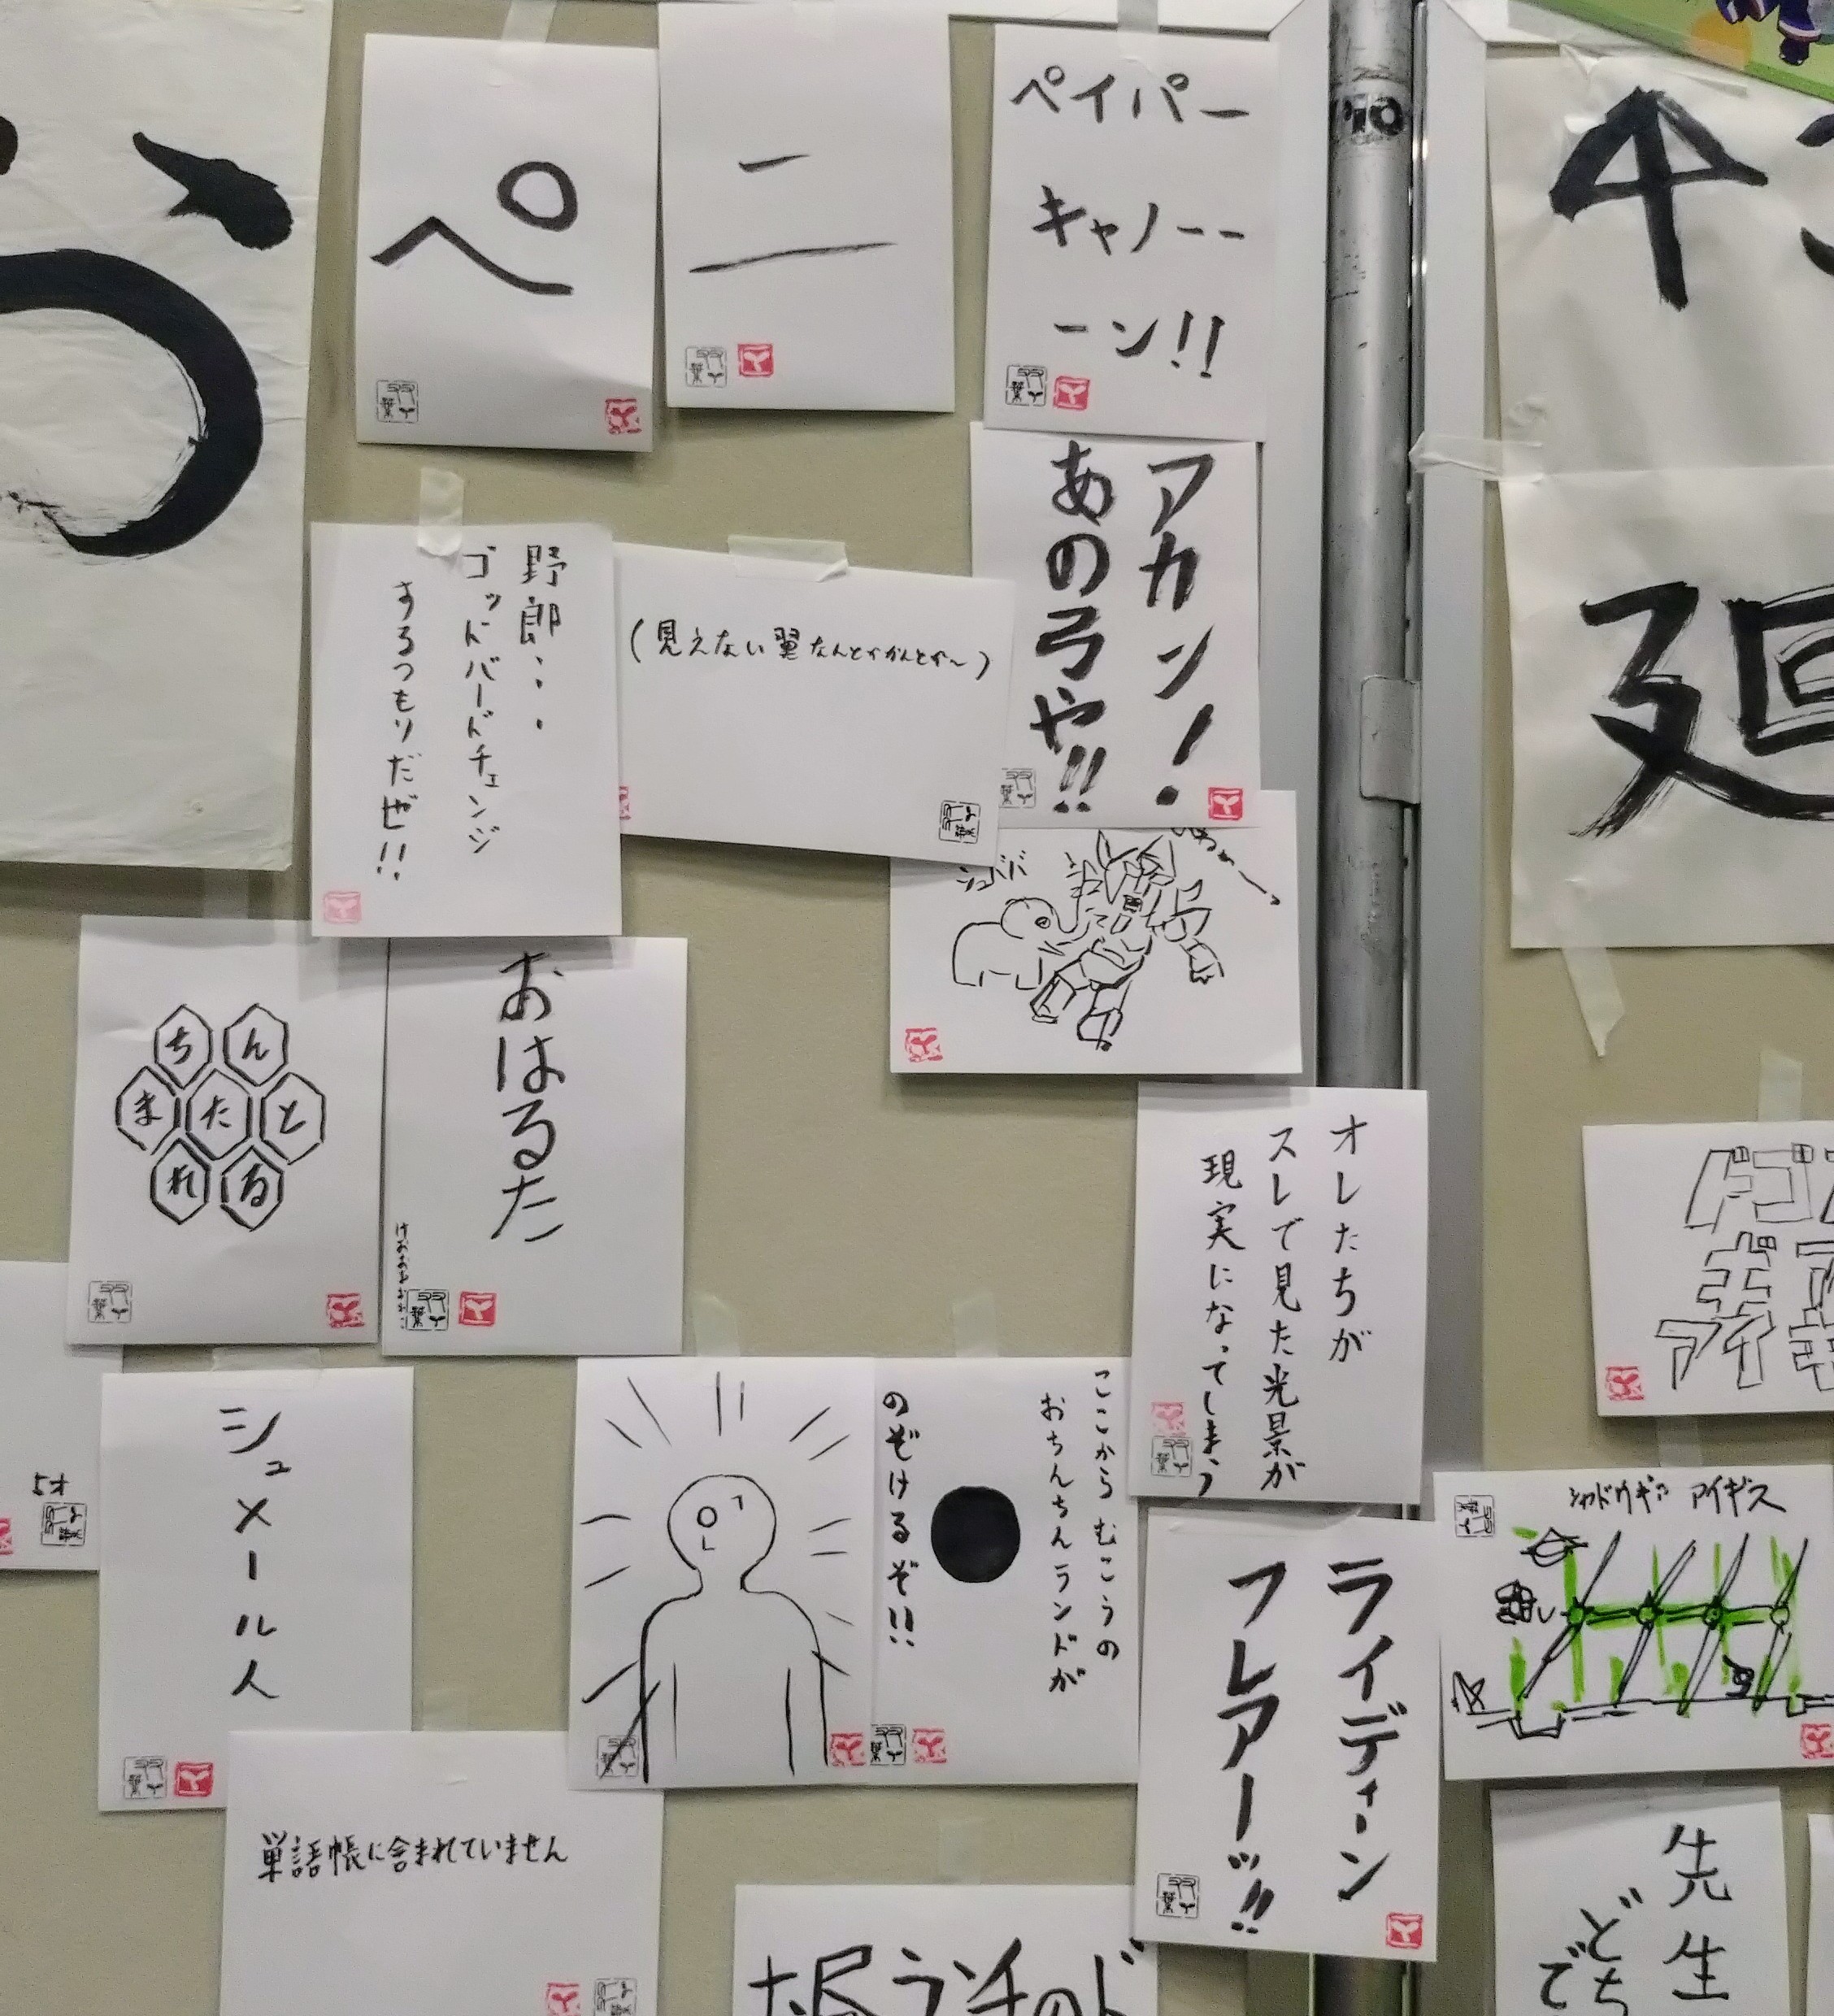 ペ
ニ
ペイパー
キャノーー
ーン!!
アカン!
あの弓や!!
野郎...
ゴッドバードチェンジ
するつもりだぜ!!
(見えない翼なんとかかんとか〜)
シュババ
ちん
またと
れる
おはるた
オレたちが
スレで見た光景が
現実になってしまう
シュメール人
ここからむこうの
おちんちんランドが
のぞけるぞ!!
ライディーン
フレアーッ!!
シャドウギア アイギス
単語帳に含まれていません
先生
5才
廻